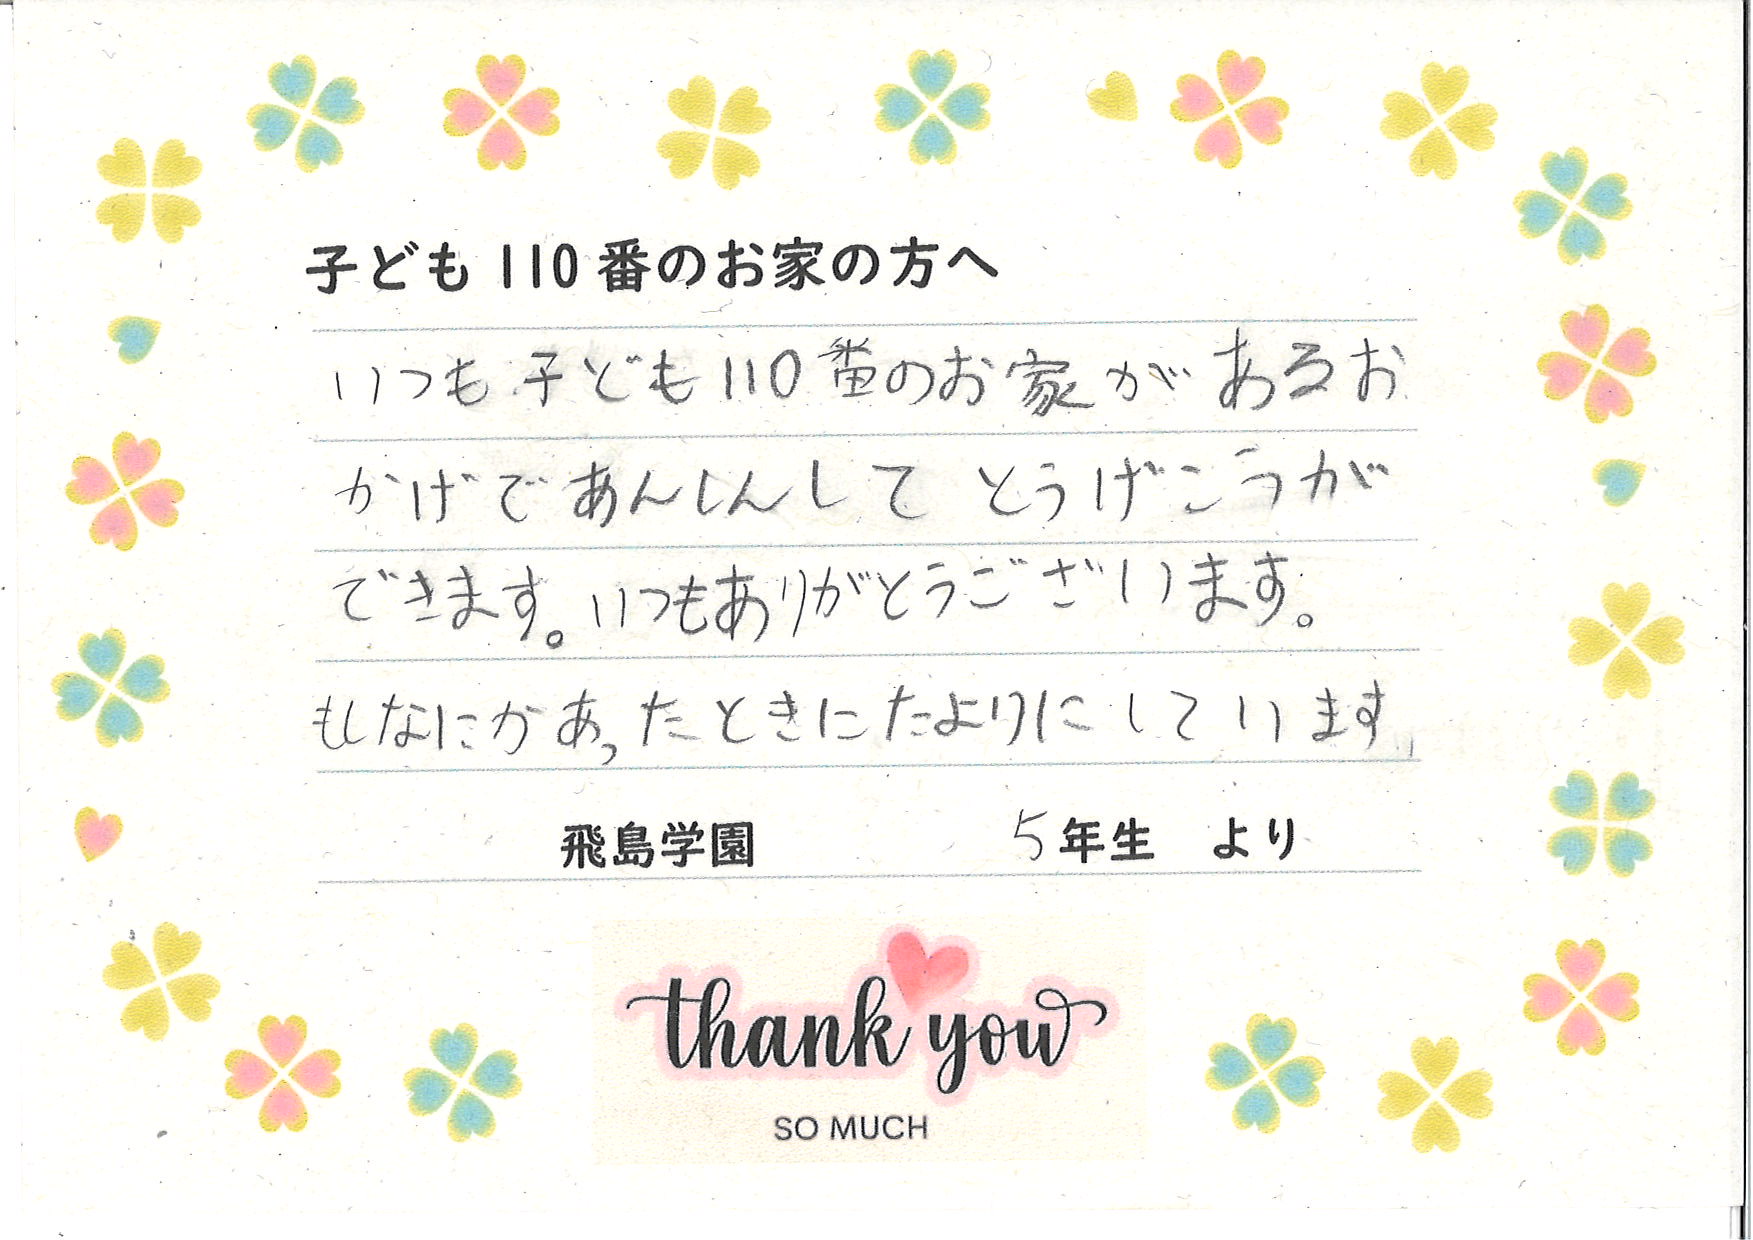 子ども110番のお家の方へ
いつも子ども110番のお家があるお
かげであんしんしてとうげこうが
できます。いつもありがとうございます。
もしなにかあったときにたよりにしています。
飛島学園 5年生 より
thank you
SO MUCH